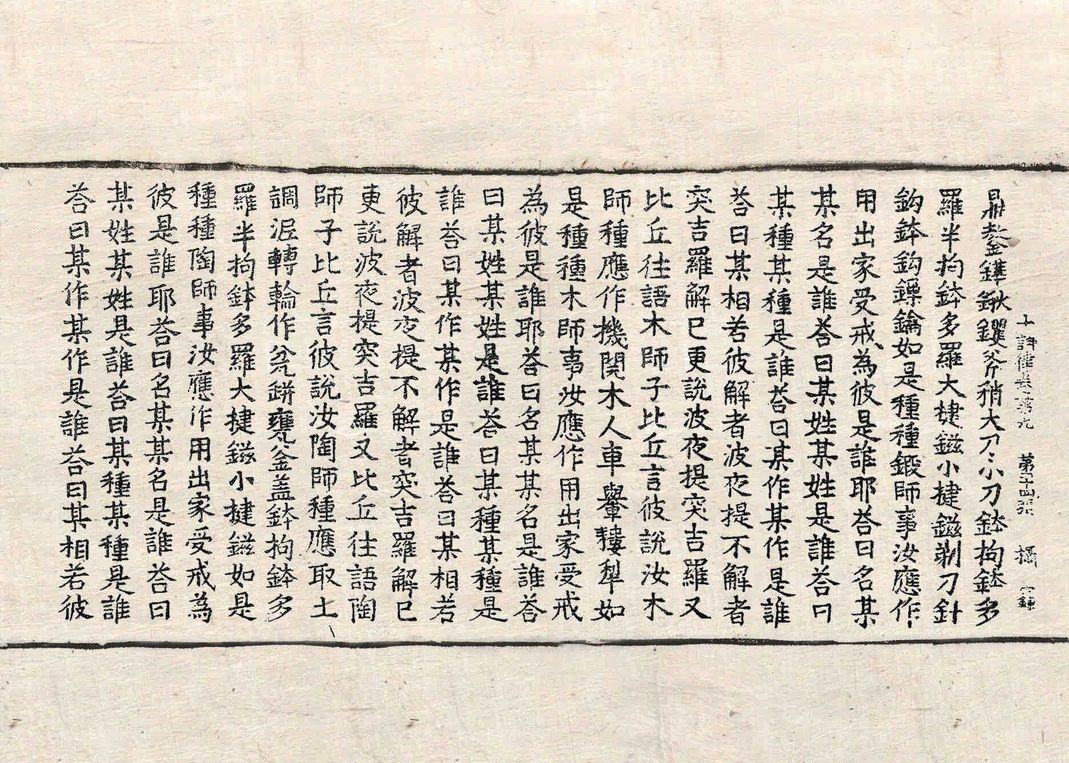 十誦律卷第九 第二十四張 攝
鼎𨫼鏵鍬钁斧矟大刀小刀鉢拘鉢多
羅半拘鉢多羅大揵鎡小揵鎡剃刀針
鈎鉢鈎鏁鑰如是種種鍛師事汝應作
用出家受戒為彼是誰耶荅曰名某
某名是誰荅曰某姓某姓是誰荅曰
某種某種是誰荅曰某作某作是誰
荅曰某相若彼解者波夜提不解者
突吉羅解已更說波夜提突吉羅又
比丘往語木師子比丘言彼說汝木
師種應作機關木人車轝犁如
是種種木師事汝應作用出家受戒
為彼是誰耶荅曰名某某名是誰荅
曰某姓某姓是誰荅曰某種某種是
誰荅曰某作某作是誰荅曰某相若
彼解者波夜提不解者突吉羅解已
更說波夜提突吉羅又比丘往語陶
師子比丘言彼說汝陶師種應取土
調泥轉輪作瓫缾甕釜盖鉢拘鉢多
羅半拘鉢多羅大揵鎡小揵鎡如是
種種陶師事汝應作用出家受戒為
彼是誰耶荅曰名某某名是誰荅曰
某姓某姓是誰荅曰某種某種是誰
荅曰某作某作是誰荅曰某相若彼